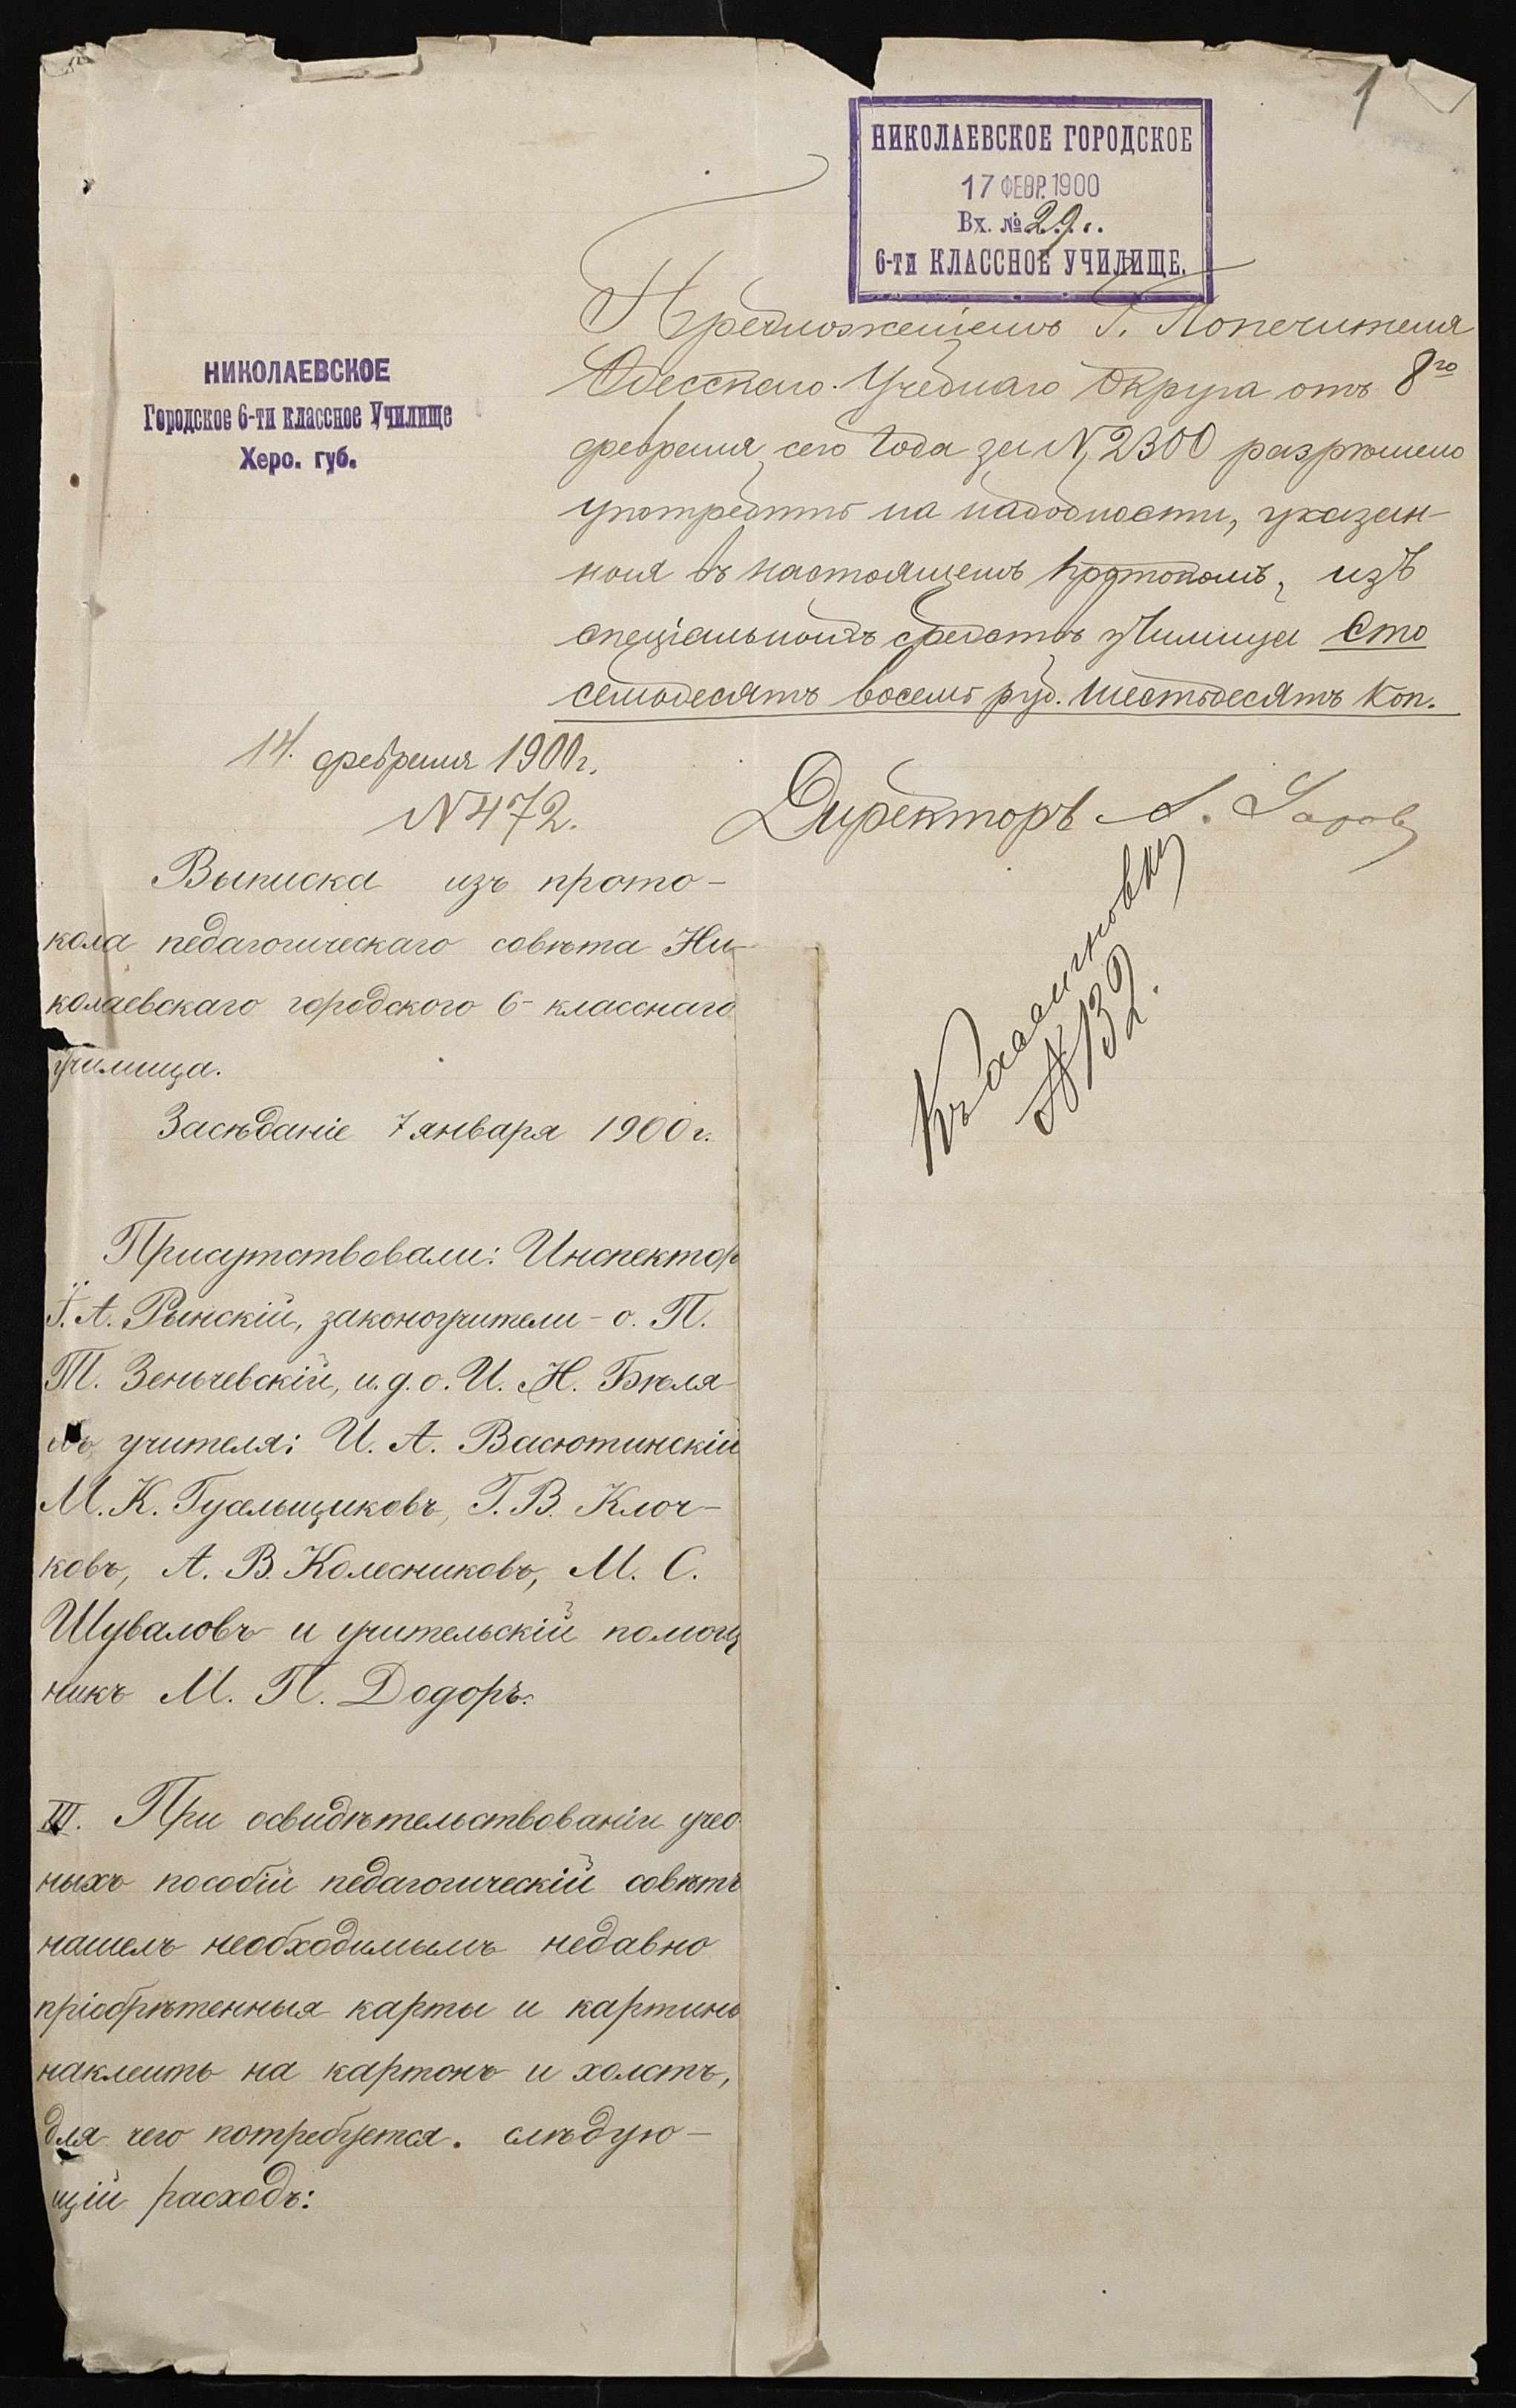 1
НИКОЛАЕВСКОЕ ГОРОДСКОЕ
17 ФЕВР. 1900
Вх. № 29.
6-ти КЛАССНОЕ УЧИЛИЩЕ.
НИКОЛАЕВСКОЕ
Городское 6-ти классное Училище
Херс. губ.
Предложеніемъ Г. Попечителя
Одесскаго Учебнаго Округа отъ 8го
февраля сего года за № 2300 разрѣшено
употребить на надобности, указан-
ныя въ настоящемъ протоколѣ, изъ
спеціальныхъ средствъ училища сто
семьдесятъ восемь руб. шестьдесятъ коп.
14. февраля 1900 г.
№ 472.
Директоръ А.
Къ ассигновку
№ 132.
Выписка изъ прото-
кола педагогическаго совѣта Ни-
колаевскаго городского 6-класснаго
училища.
Засѣданіе 7 января 1900 г.
Присутствовали: Инспекторъ
І. А. Рынскій, законоучители - о. П.
Т. Зеньчевскій, и. д. о. И. Н. Бѣля-
учителя: И. А. Васютинскій
М. К. Гусельщиковъ, Г. В. Клоч-
ковъ, А. В. Колесниковъ, М. С.
Шуваловъ и учительскій помощ
никъ М. П. Додоръ.
III. При освидѣтельствованіи учеб-
ныхъ пособій педагогическій совѣтъ
нашелъ необходимымъ недавно
пріобрѣтенныя карты и картины
наклеить на картонъ и холстъ,
для чего потребуется. слѣдую-
щій расходъ: